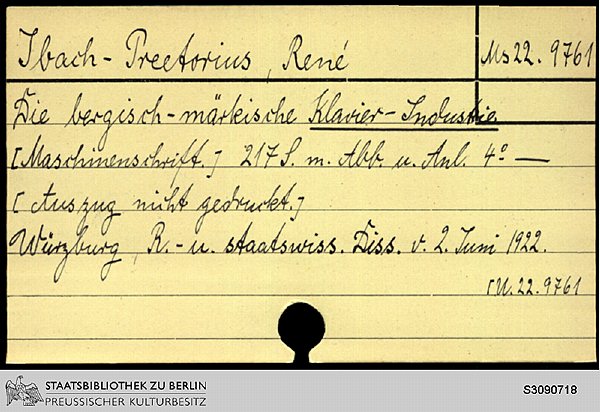 Ibach-Preetorius, René
Ms 22. 9761
Die bergisch-märkische Klavier-Industrie
[Maschinenschrift.] 217 S. m. Abb. u. Anl. 4° —
[Auszug nicht gedruckt.]
Würzburg, R.- u. staatswiss. Diss. v. 2. Juni 1922.
[U. 22. 9761
STAATSBIBLIOTHEK ZU BERLIN
PREUSSISCHER KULTURBESITZ
S3090718